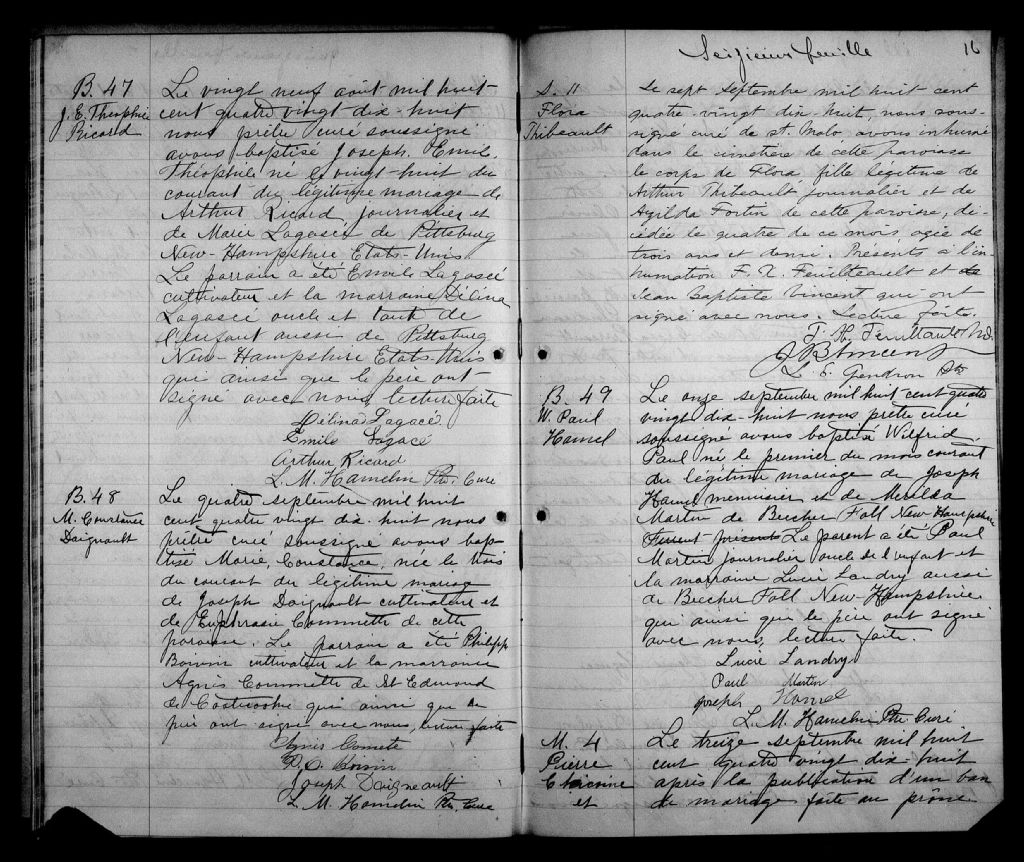 B. 47
J. E. Théophile
Ricard
Le vingt neuf août mil huit
cent quatre vingt dix-huit
nous prêtre curé soussigné
avons baptisé Joseph, Emile,
Théophile né le vingt huit du
courant du légitime mariage de
Arthur Ricard journalier et
de Marie Lagassé de Pittsburg
New-Hampshire Etats-Unis.
Le parrain a été Emile Lagassé
cultivateur et la marraine Délina
Lagassé oncle et tante de
l'enfant aussi de Pittsburg
New-Hampshire Etats-Unis
qui ainsi que le père ont
signé avec nous lecture faite
Délina Lagacé
Emile Lagacé
Arthur Ricard
L. M. Hamelin Ptr. Curé
B. 48
M. Constance
Daignault
Le quatre septembre mil huit
cent quatre vingt dix-huit nous
prêtre curé soussigné avons bap-
tisé Marie, Constance, née le trois
du courant du légitime mariage
de Joseph Daignault cultivateur et
de Euphrasie Commette de cette
paroisse. Le parrain a été Philipp
Boivin cultivateur et la marraine
Agnès Commette de St Edmond
de Coaticooke qui ainsi que le
père ont signé avec nous, lecture faite
Agnis Comete
Boivin
Joseph Daigneault
L. M. Hamelin Ptr. Curé
Seizième feuille
16
S. 11
Flora
Thibeault
Le sept septembre mil huit cent
quatre-vingt dix-huit, nous sous-
signé curé de St. Malo avons inhumé
dans le cimetière de cette paroisse
le corps de Flora, fille légitime de
Arthur Thibeault journalier et de
Azilda Fortin de cette paroisse, dé-
cédée le quatre de ce mois agée de
trois ans et demi. Présents à l'in-
humation F. X. Feuilteault et
Jean Baptiste Vincent qui ont
signé avec nous. Lecture faite.
F. X. Feuilteault
J B Vincent
L. E. Gendron Ptr
B. 49
W. Paul
Hamel
Le onze septembre mil huit cent quatre
vingt dix-huit nous prêtre curé
soussigné avons baptisé Wilfrid
Paul né le premier du mois courant
du légitime mariage de Joseph
Hamel menuisier et de Meralda
Martin de Beecher Fall New-Hampshire
Furent présents Le parent a été Paul
Martin journalier oncle de l'enfant et
la marraine Lucie Landry aussi
de Beecher Fall New-Hampshire
qui ainsi que le père ont signé
avec nous, lecture faite.
Lucie Landry
Paul Martin
Joseph Hamel
L. M. Hamelin Ptr. Curé
M. 4
Pierre
Choicoine
et
Le treize septembre mil huit
cent quatre vingt dix-huit
après la publication d'un ban
de mariage faite au prône